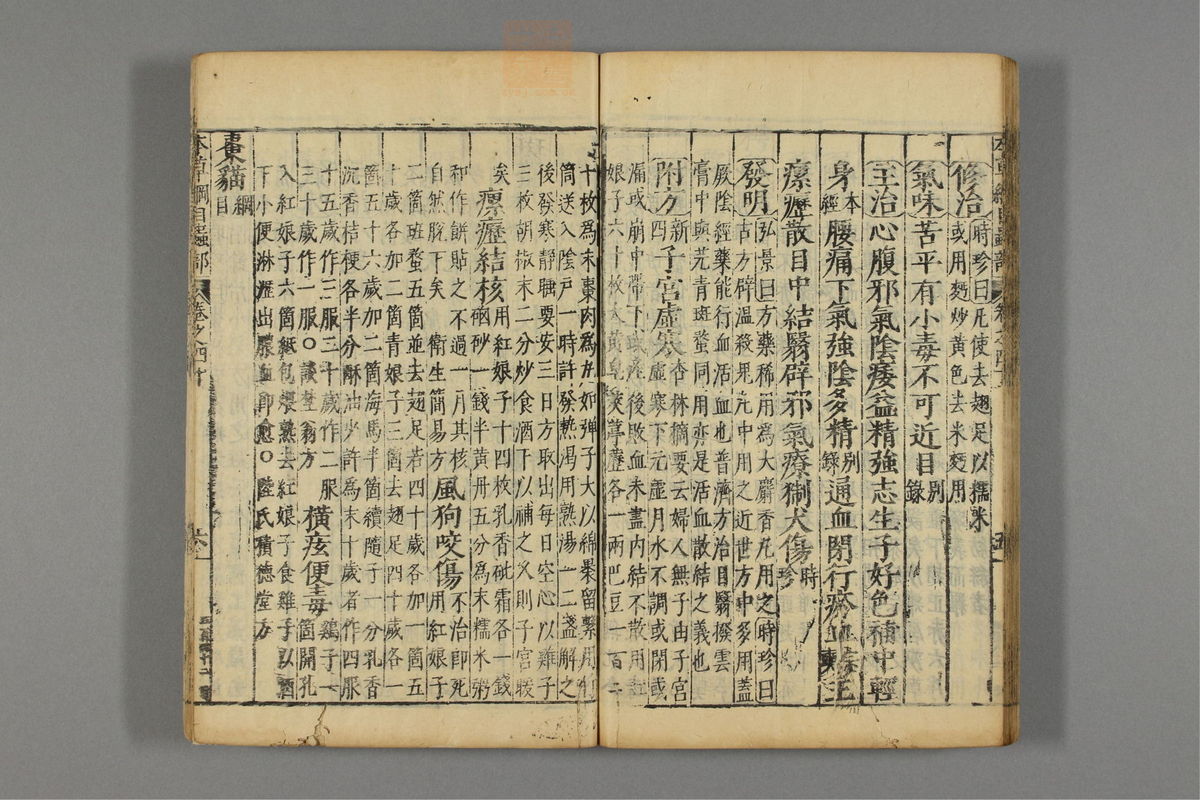 修治時珍曰凡使去翅足以糯米
或用麪炒黄色去米麪用
氣味苦平有小毒不可近目别錄
主治心腹邪氣陰痿益精強志生子好色補中輕
身本經腰痛下氣強陰多精别錄通血閉行瘀血
瘰癧散目中結翳辟邪氣療猘犬傷時珍
發明弘景曰方藥稀用爲大麝香凡用之時珍曰
古方辟瘟殺鬼元中用之近世方中多用蓋
厥陰經藥能行血活血也普濟方治目翳撥雲
膏中與芫青斑蝥同用亦是活血散結之義也
附方新四子宮虛寒杏林摘要云婦人無子由子宮
虛寒下元虛月水不調或閉或
漏或崩中帶下或産後敗血未盡内結不散用紅
娘子六十枚大黄皂莢葶藶各一兩巴豆一百二
十枚爲末棗肉爲丸如彈子大以綿裹留繫用
筒送入陰戶一時許發熱渴用熟湯一二盞解之
後發寒靜睡要安三日方取出每日空心以雞子
三枚胡椒末二分炒食酒下以補之久則子宮暖
矣瘰癧結核用紅娘子十四枚乳香砒霜各一錢
硇砂一錢半黄丹五分爲末糯米粥
和作餅貼之不過一月其核
自然脫下矣衛生簡易方風狗咬傷不治即死
用紅娘子
二箇班蝥五箇並去翅足若四十歲各加一箇五
十歲各加二箇青娘子三箇去翅足四十歲各一
箇五十六歲加二箇海馬半箇續隨子一分乳香
沉香桔梗各半分酥油少許爲末十歲者作四服
十五歲作三服二十歲作二服
三十歲作一服○談埜翁方横痃便毒鷄子一
箇開孔
入紅娘子六箇紙包煨熟去紅娘子食雞子以酒
下小便淋瀝出膿血即愈○陸氏積德堂方
棗貓綱目
本草綱目蟲部
卷之四十
六